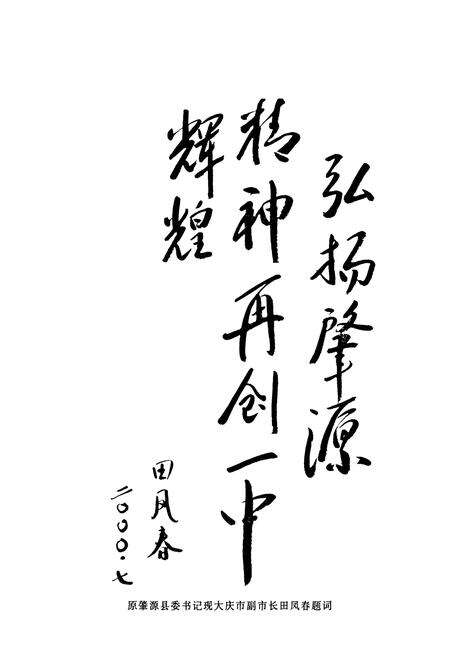 弘扬肇源
精神再创一中
辉煌
田凤春
二〇〇〇·七
原肇源县委书记现大庆市副市长田凤春题词